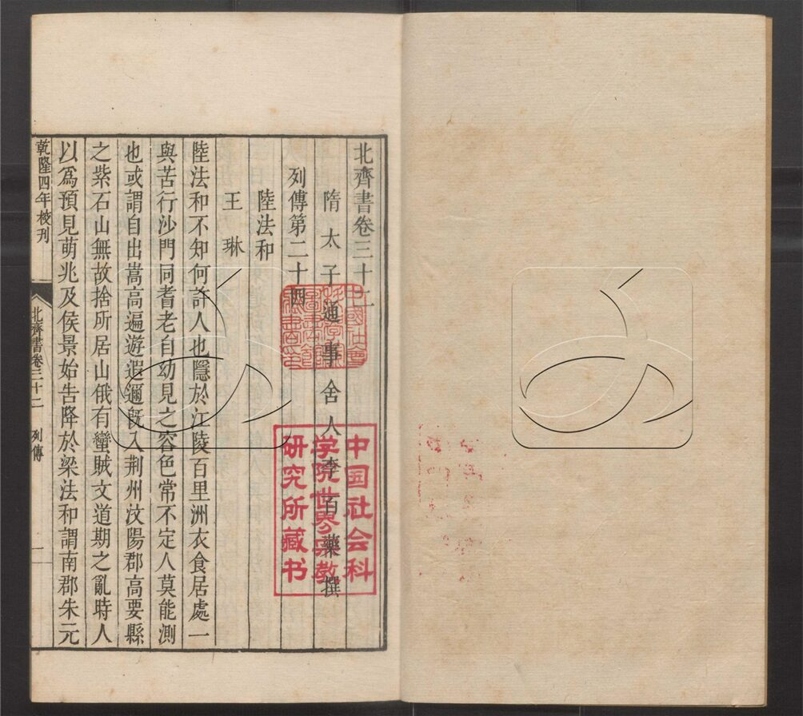 北齊書卷三十二
隋太子通事舍人李百藥撰
列傳第二十四
陸法和
王琳
陸法和不知何許人也隱於江陵百里洲衣食居處一
與苦行沙門同耆老自幼見之容色常不定人莫能測
也或謂自出嵩高遍遊遐邇旣入荆州汶陽郡高要縣
之紫石山無故捨所居山俄有蠻賊文道期之亂時人
以爲預見萌兆及侯景始告降於梁法和謂南郡朱元
乾隆四年校刊
北齊書卷三十二 列傳 一
中国社会科
学院世界宗教
研究所藏书